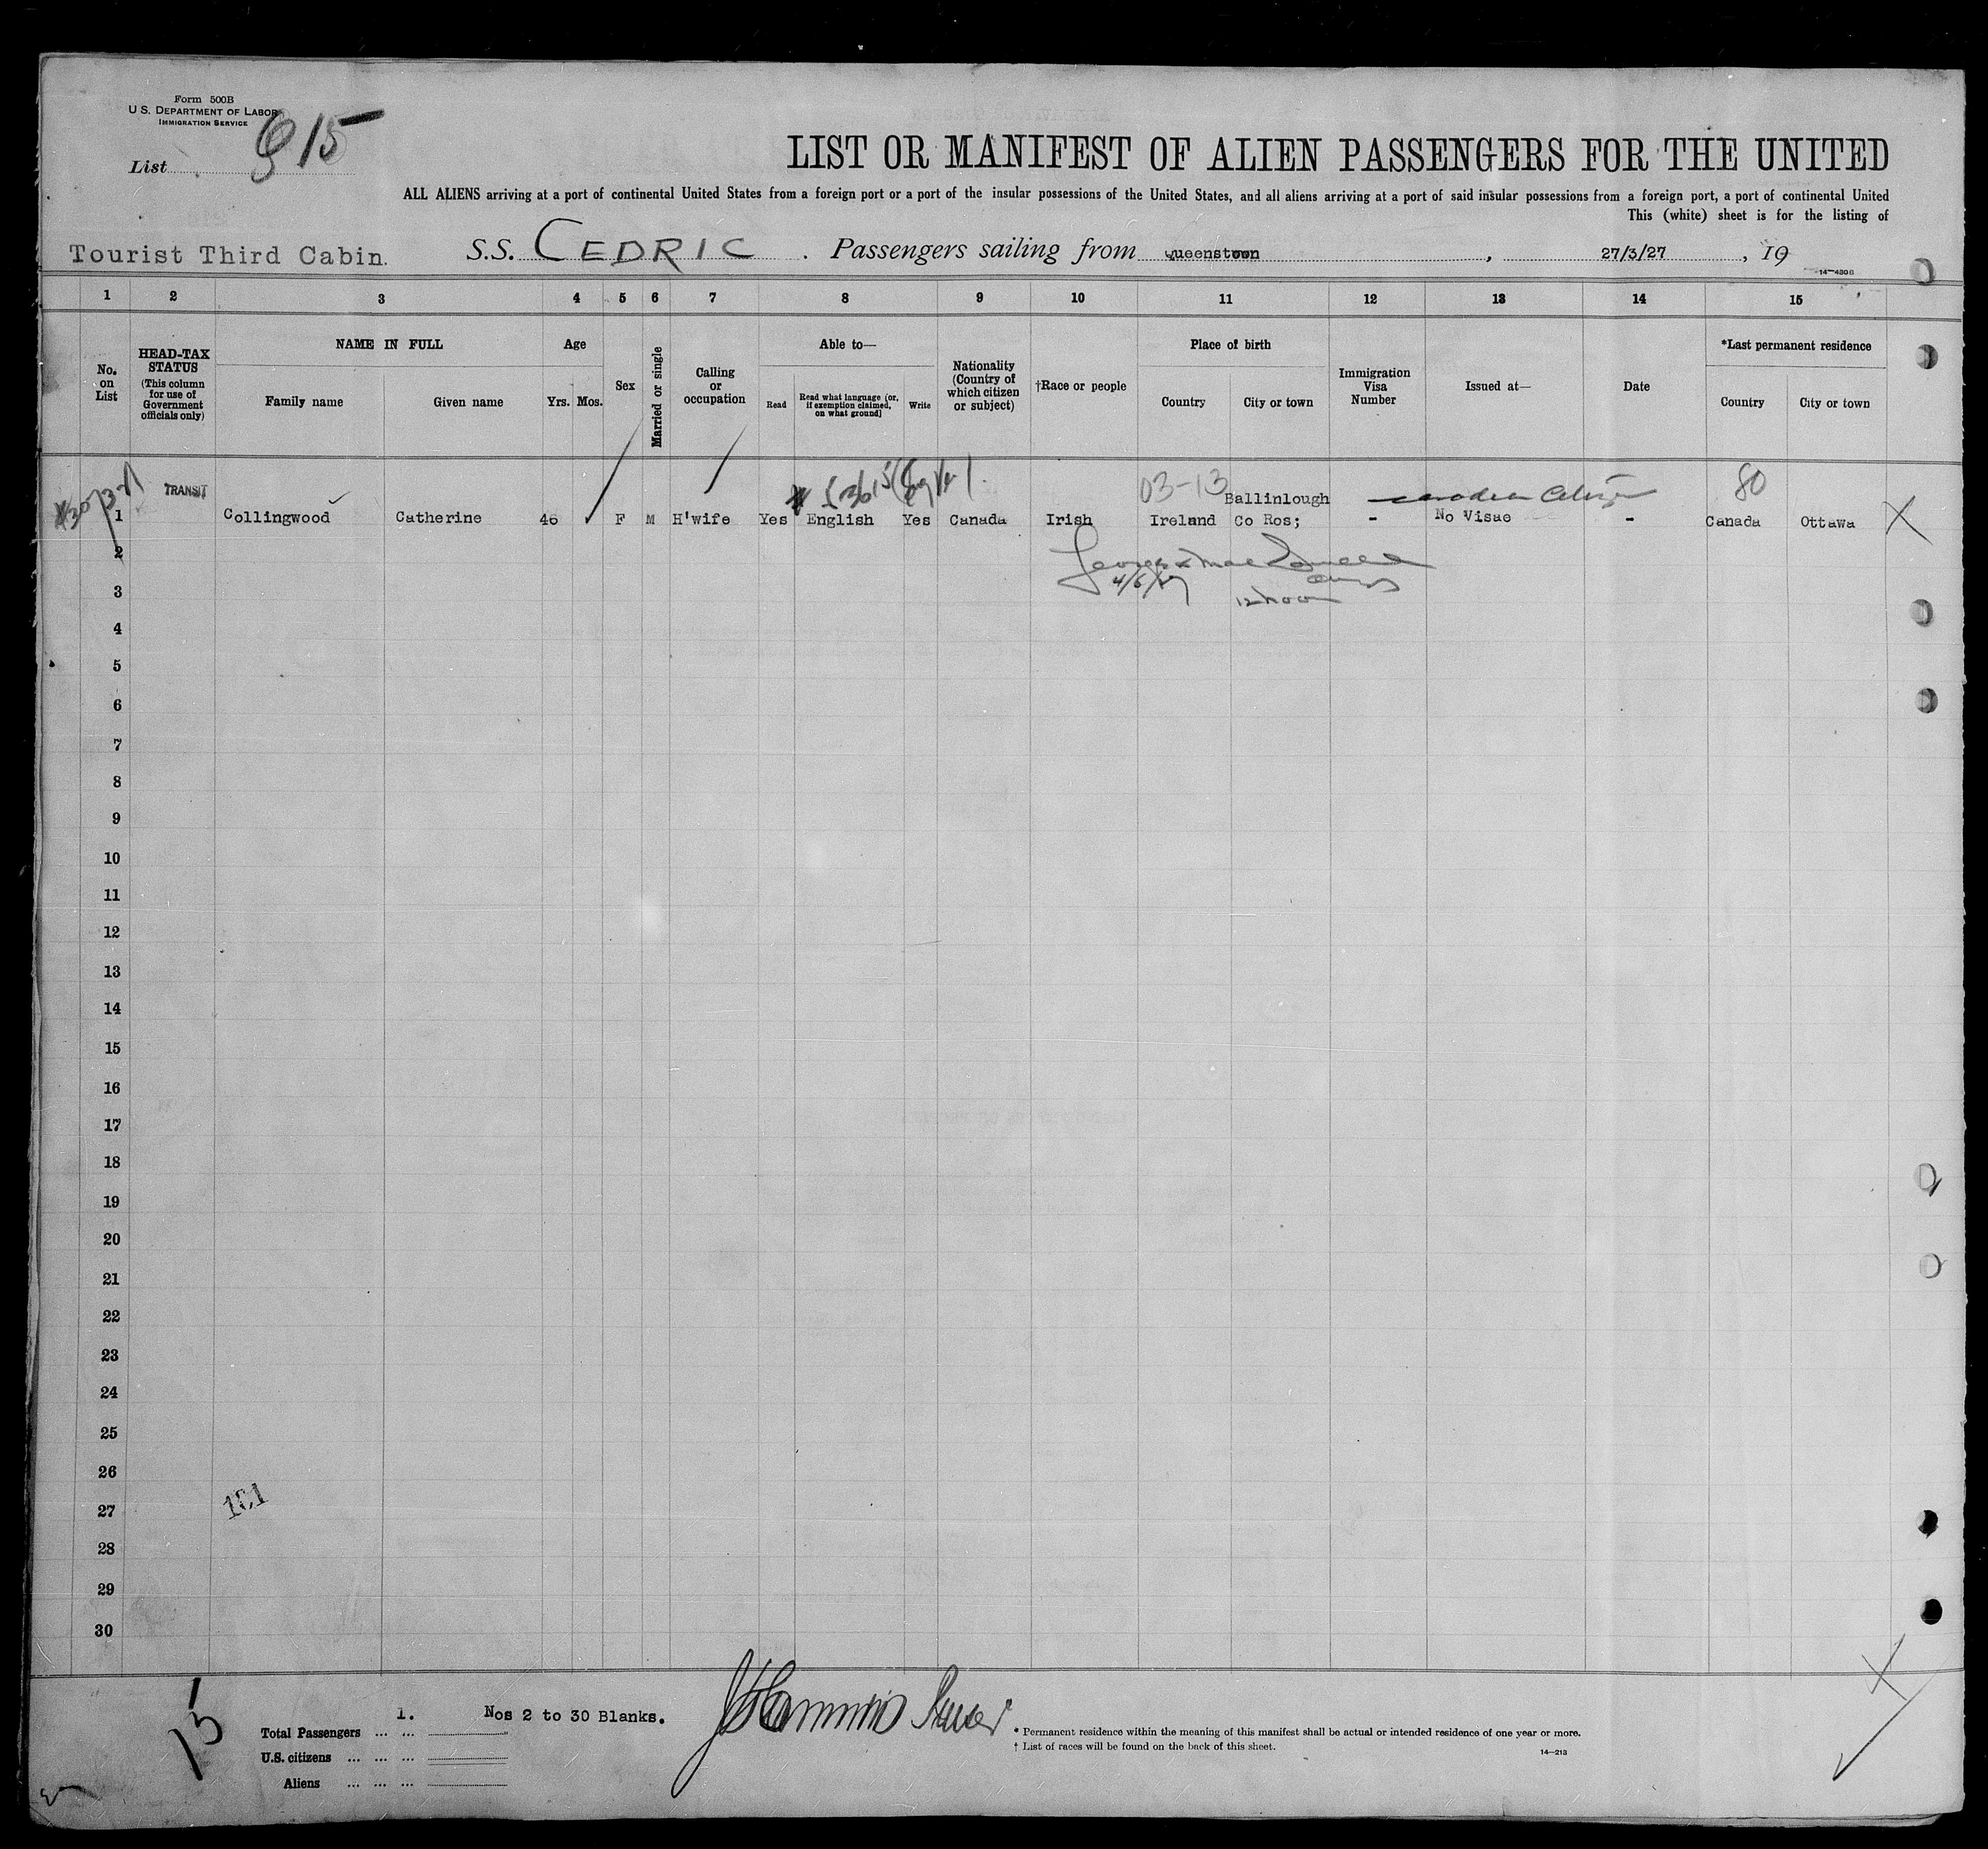 Form 500B
U.S. DEPARTMENT OF LABOR
IMMIGRATION SERVICE
List 915
LIST OR MANIFEST OF ALIEN PASSENGERS FOR THE UNITED
ALL ALIENS arriving at a port of continental United States from a foreign port or a port of the insular possessions of the United States, and all aliens arriving at a port of said insular possessions from a foreign port, a port of continental United
This (white) sheet is for the listing of
Tourist Third Cabin. S.S. CEDRIC. Passengers sailing from queenstown, 27/3/27, 19
14—4808
1 2 3 4 5 6 7 8 9 10 11 12 13 14 15
No. on List
HEAD-TAX STATUS
(This column for use of Government officials only)
NAME IN FULL
Family name Given name
Age
Yrs. Mos.
Sex
Married or single
Calling or occupation
Able to—
Read
Read what language (or, if exemption claimed, on what ground)
Write
Nationality (Country of which citizen or subject)
†Race or people
Place of birth
Country City or town
Immigration Visa Number
Issued at—
Date
*Last permanent residence
Country City or town
TRANSIT 03-13 Ballinlough 80
1 Collingwood Catherine 46 F M H'wife Yes English Yes Canada Irish Ireland Co Ros; - No Visae - Canada Ottawa X
2
3 4/6/27 12 noon
4
5
6
7
8
9
10
11
12
13
14
15
16
17
18
19
20
21
22
23
24
25
26
27
101
28
29
30
15
Total Passengers ... ... 1. Nos 2 to 30 Blanks.
U.S. citizens ... ... ...
Aliens ... ... ...
* Permanent residence within the meaning of this manifest shall be actual or intended residence of one year or more.
† List of races will be found on the back of this sheet.
14—213